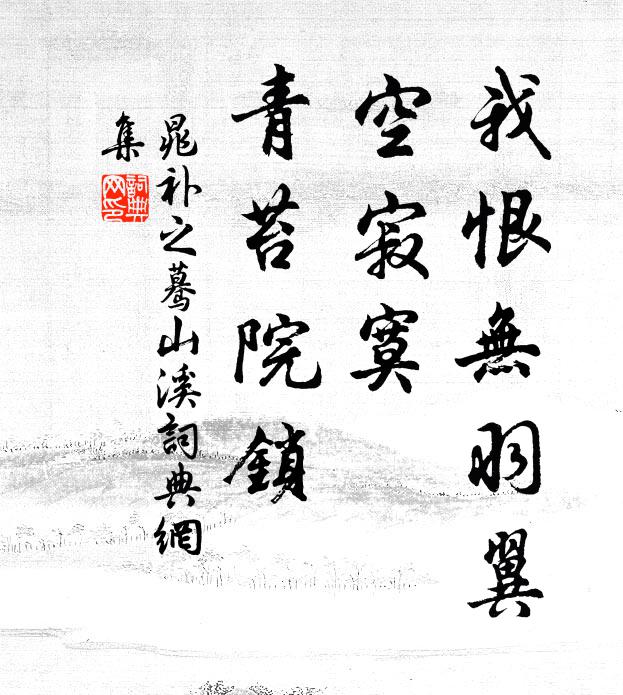 我恨無羽翼
空寂寞
青苔院鎖
晁补之蓦山溪詞典網
集
詞典网印